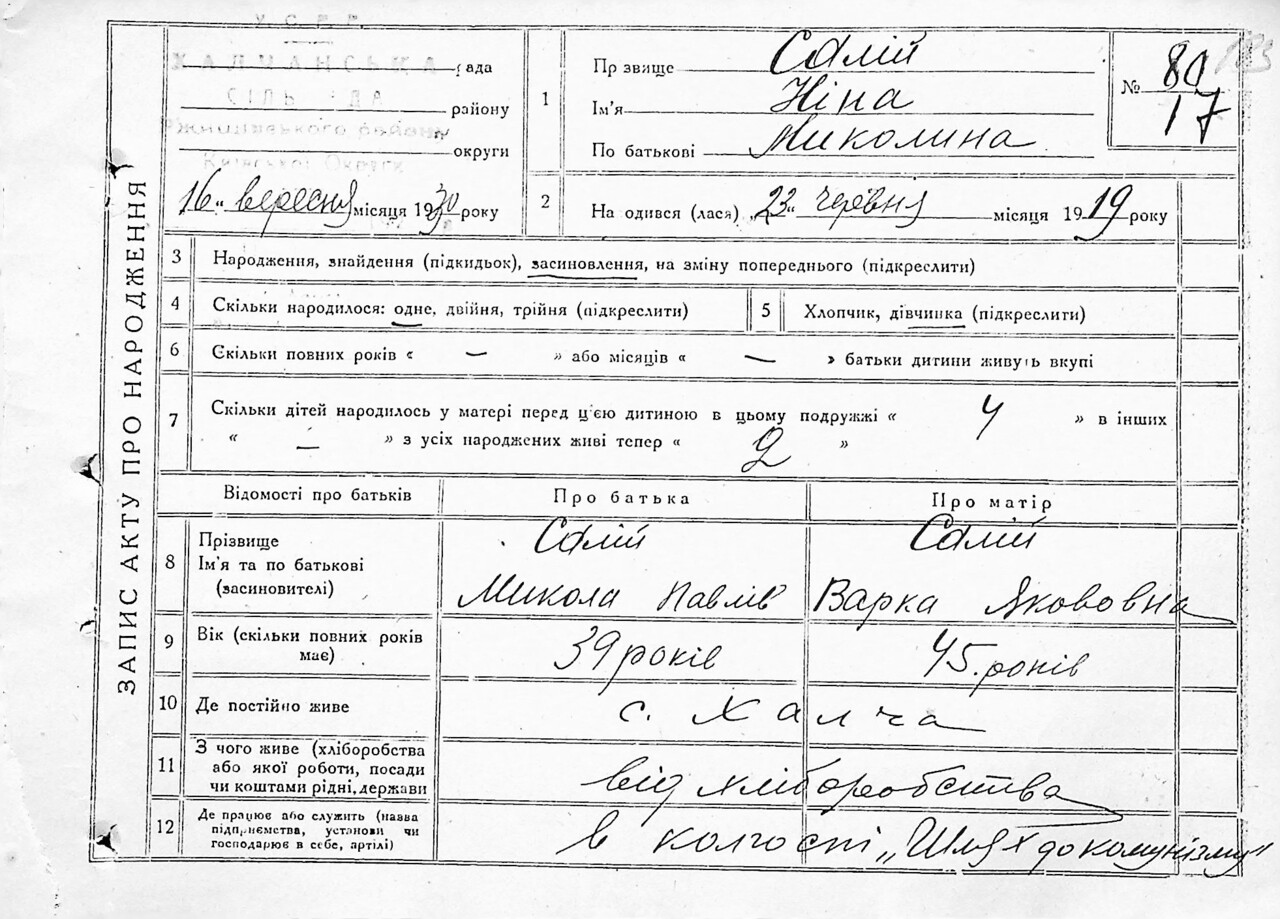 У.С.Р.Р.
ХАЛЧАНСЬКА
рада
СІЛЬ ДА
району
Ржищівського району
округи
Київської Округи
„16“ вересня місяця 1930 року
1
Прізвище Салій
Ім'я Ніна
По батькові Миколина
№ 80
17
2
На одився (лася) „23“ червня місяця 1919 року
ЗАПИС АКТУ ПРО НАРОДЖЕННЯ
3 Народження, знайдення (підкидьок), засиновлення, на зміну попереднього (підкреслити)
4 Скільки народилося: одне, двійня, трійня (підкреслити)
5 Хлопчик, дівчинка (підкреслити)
6 Скільки повних років « — » або місяців « — » батьки дитини живуть вкупі
7 Скільки дітей народилось у матері перед ц'єю дитиною в цьому подружжі « 4 » в інших
« — » з усіх народжених живі тепер « 2 »
Відомості про батьків Про батька Про матір
8 Прізвище
Ім'я та по батькові
(засиновителі)
Салій
Микола Павлів
Салій
Варка Якововна
9 Вік (скільки повних років
має)
39 років 45 років
10 Де постійно живе с. Халча
11 З чого живе (хліборобства
або якої роботи, посади
чи коштами рідні, держави
від хліборобства
12 Де працює або служить (назва
підприємства, установи чи
господарює в себе, артілі)
в колгоспі „Шлях до комунізму"